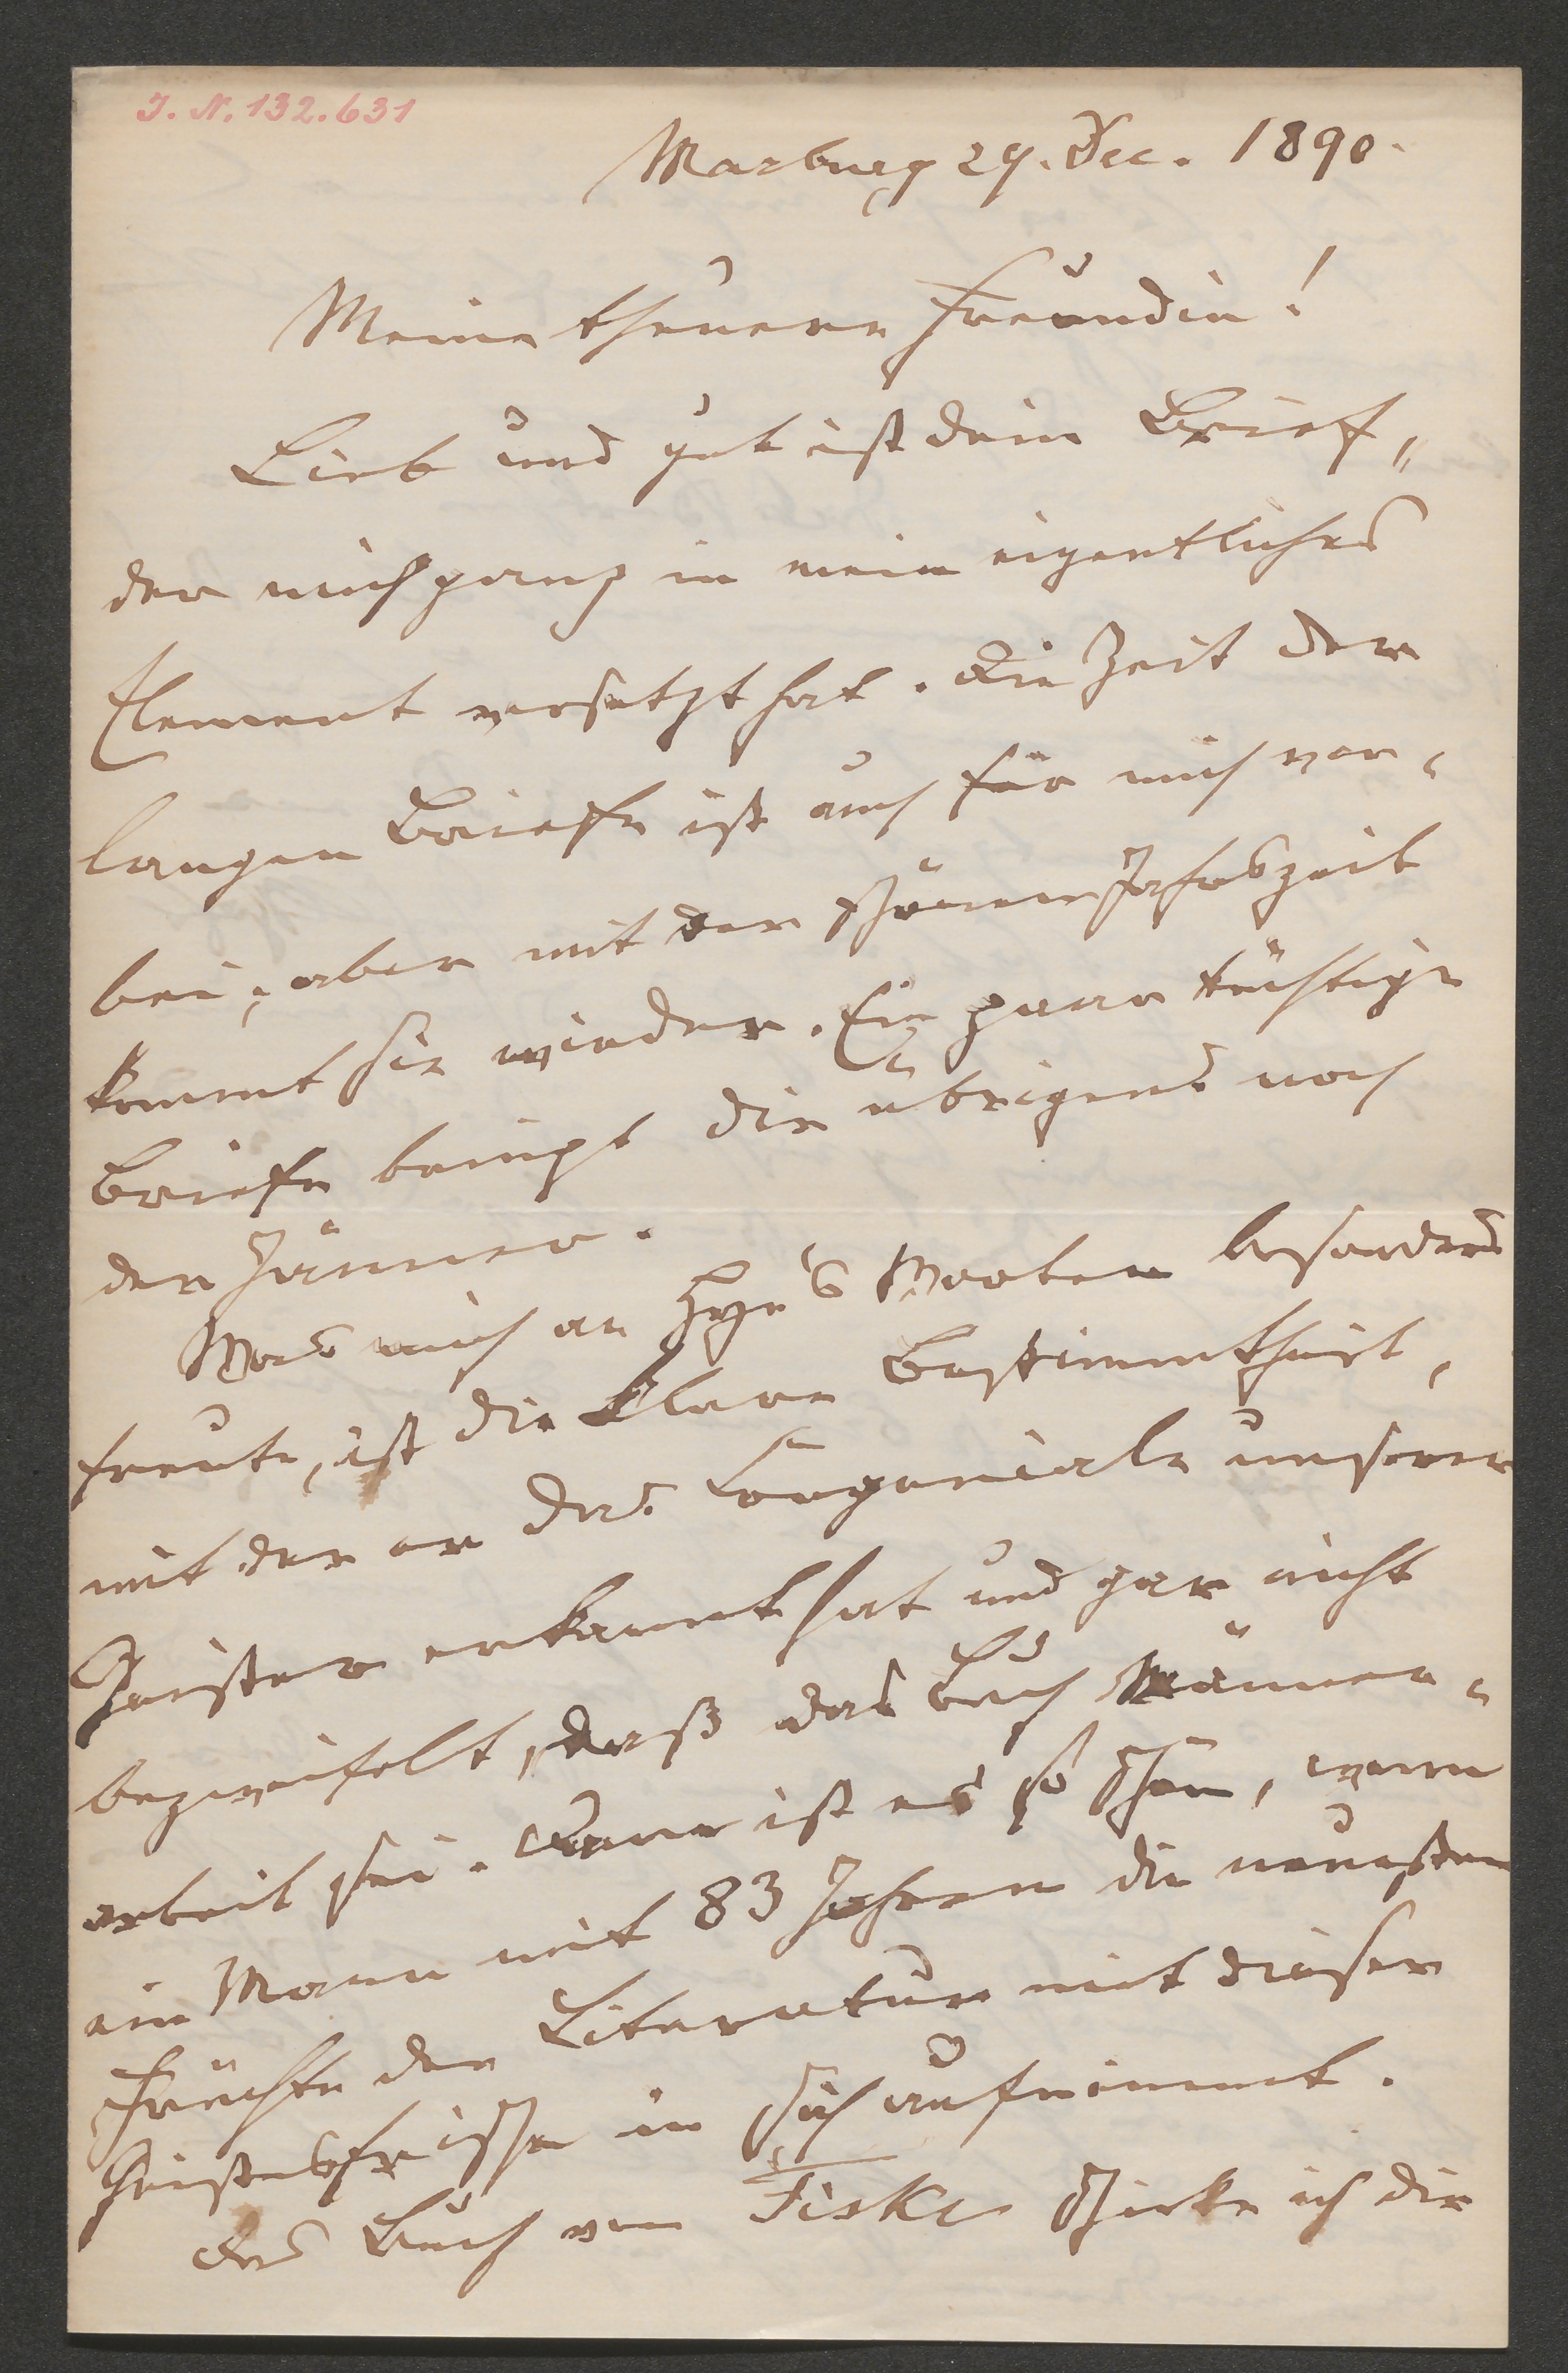 I. N. 132.631
Marburg 29. Dec. 1890.
Meine theuere Freundin!
Lieb und gut ist dein Brief,
der mich ganz in mein eigentliches
Element versetzt hat. Die Zeit der
langen Briefe ist auch für mich vor-
bei; aber mit der schönen Jahrszeit
kommt sie wieder. Ein paar tüchtige
Briefe bringt dir übrigens noch
der Jänner.
Was mich an Hye's Worten besonders
freute, ist die klare Bestimmtheit,
mit der er das Congeniale unserer
Geister erkannt hat und gar nicht
bezweifelt, daß das Buch Männer-
arbeit sei. Dann ist es so schön, wenn
ein Mann mit 83 Jahren die neuesten
Früchte der Literatur mit dieser
Geistesfrische in sich aufnimmt.
Das Buch von Fiske schicke ich dir